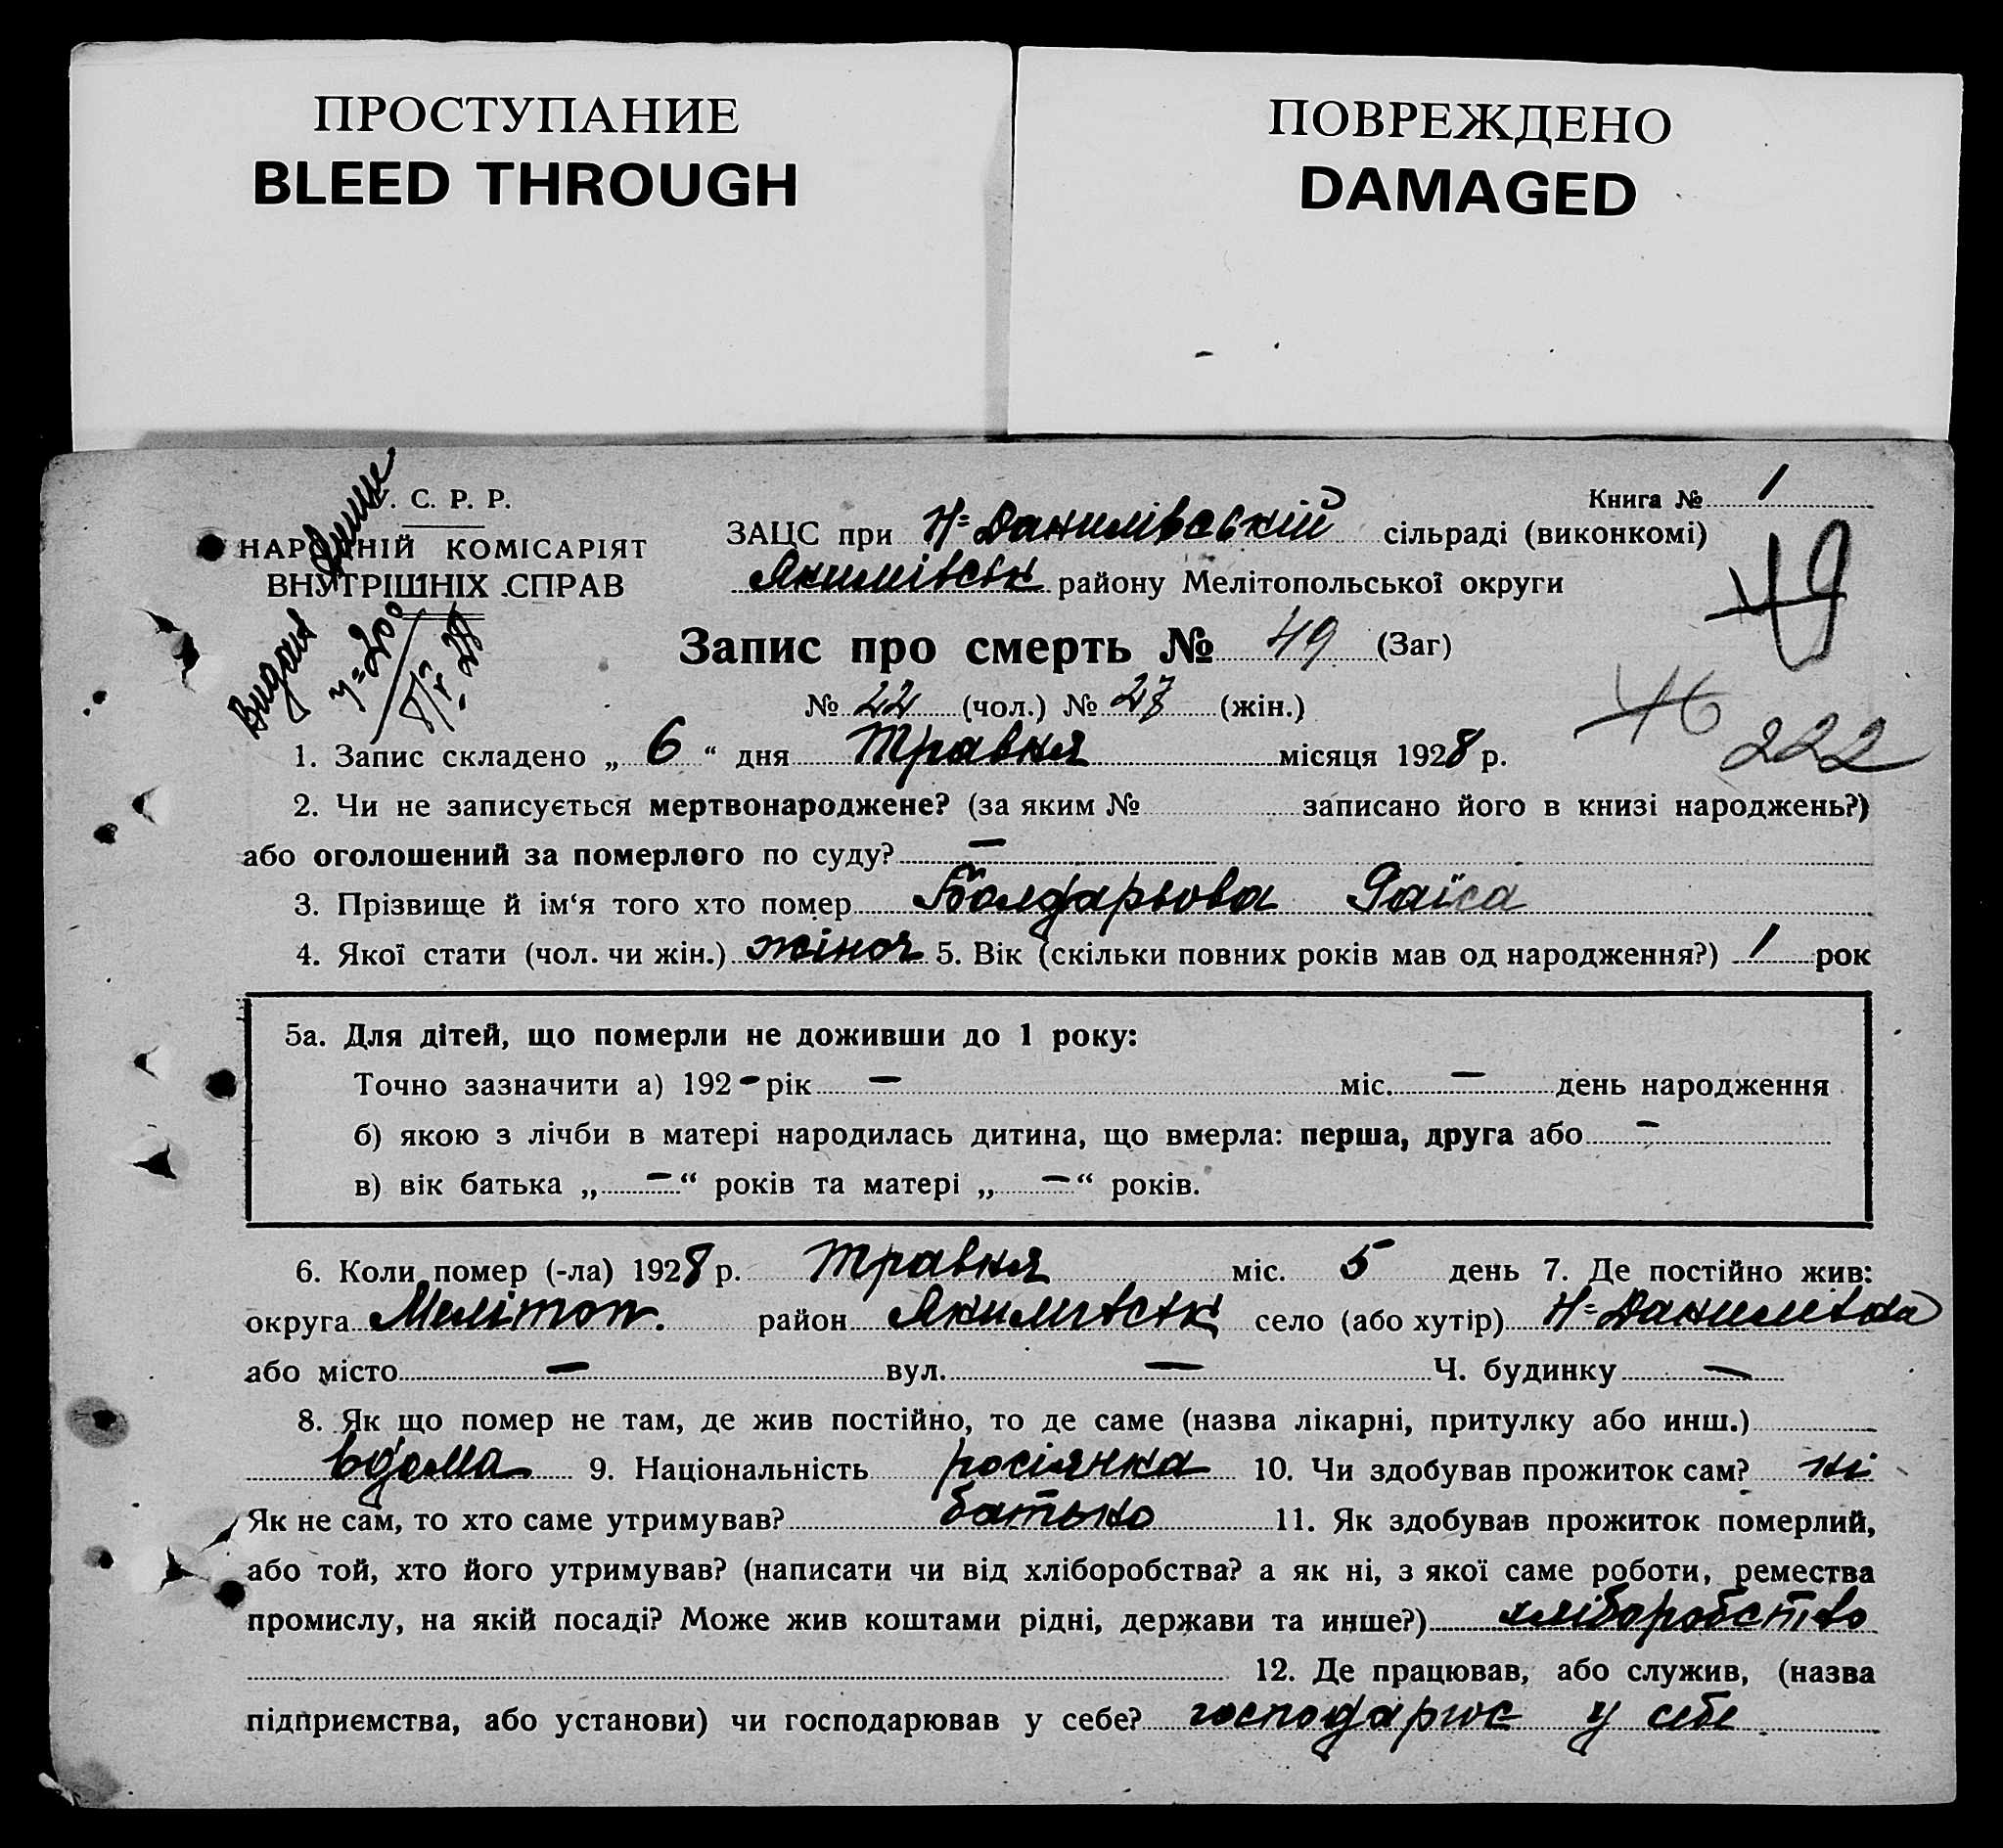 ПРОСТУПАНИЕ
BLEED THROUGH
ПОВРЕЖДЕНО
DAMAGED
. С. Р. Р.
НАРОДНІЙ КОМІСАРІЯТ
ВНУТРІШНІХ СПРАВ
Видан
Книга № 1
ЗАЦС при Н=Данилівській сільраді (виконкомі)
Якимівськ району Мелітопольської округи
49
Запис про смерть № 49 (Заг)
№ 22 (чол.) № 27 (жін.)
46
222
1. Запис складено „ 6 “ дня Травня місяця 1928 р.
2. Чи не записується мертвонароджене? (за яким № записано його в книзі народжень?)
або оголошений за померлого по суду? —
3. Прізвище й ім‘я того хто помер Болдарьова Раїса
4. Якої стати (чол. чи жін.) жіноч 5. Вік (скільки повних років мав од народження?) 1 рок
5а. Для дітей, що померли не доживши до 1 року:
Точно зазначити а) 192 – рік — міс. — день народження
б) якою з лічби в матері народилась дитина, що вмерла: перша, друга або –
в) вік батька „ — “ років та матері „ — “ років.
6. Коли помер (-ла) 1928 р. Травня міс. 5 день 7. Де постійно жив:
округа Мелітоп. район Якимівськ село (або хутір) Н=Данилівка
або місто — вул. — Ч. будинку —
8. Як що помер не там, де жив постійно, то де саме (назва лікарні, притулку або инш.)
вдома 9. Національність росіянка 10. Чи здобував прожиток сам? ні
Як не сам, то хто саме утримував? батько 11. Як здобував прожиток померлий,
або той, хто його утримував? (написати чи від хліборобства? а як ні, з якої саме роботи, ремества
промислу, на якій посаді? Може жив коштами рідні, держави та инше?) хліборобство
12. Де працював, або служив, (назва
підприємства, або установи) чи господарював у себе? господарює у себе